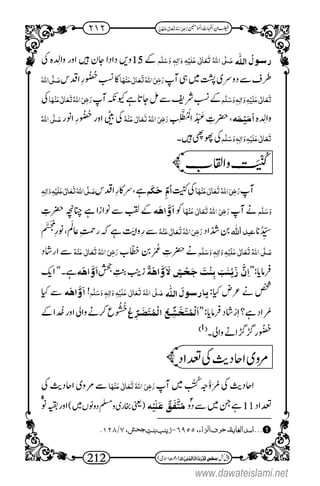 فیضانِ اُمَّہاتُ المؤمنین رَضِیَ اللہُ تَعَالٰی عَنْہُنَّ ٢١٢
رسول اللہ صَلَّی اللہُ تَعَالٰی عَلَیْہِ وَاٰلِہٖ وَسَلَّم کے 15ویں دادا جان ہیں اور والدہ کی
طرف سے دوسری پشت میں ہی آپ رَضِیَ اللہُ تَعَالٰی عَنْہَا کا نسب حُضُورِ اقدس صَلَّی اللہُ
تَعَالٰی عَلَیْہِ وَاٰلِہٖ وَسَلَّم کے نسب شریف سے مل جاتا ہے کیونکہ آپ رَضِیَ اللہُ تَعَالٰی عَنْہَا کی
والدہ اُمَیْمَہ، حضرتِ عَبْدُ الْمُطَّلِب رَضِیَ اللہُ تَعَالٰی عَنْہُ کی بیٹی اور حُضُورِ انور صَلَّی اللہُ
تَعَالٰی عَلَیْہِ وَاٰلِہٖ وَسَلَّم کی پھوپھی ہیں۔
کُنْیَت والقاب
آپ رَضِیَ اللہُ تَعَالٰی عَنْہَا کی کنیت اُمِّ حَکَم ہے، سرکارِ اقدس صَلَّی اللہُ تَعَالٰی عَلَیْہِ وَاٰلِہٖ
وَسَلَّم نے آپ رَضِیَ اللہُ تَعَالٰی عَنْہَا کو اَوَّاھَہ کے لقب سے نوازا ہے چنانچہ حضرتِ
سیّدُنا عبد اللہ بن شداد رَضِیَ اللہُ تَعَالٰی عَنْہُ سے روایت ہے کہ رحمتِ عالَم، نورِ مُجَسَّم
صَلَّی اللہُ تَعَالٰی عَلَیْہِ وَاٰلِہٖ وَسَلَّم نے حضرتِ عمر بن خطّاب رَضِیَ اللہُ تَعَالٰی عَنْہُ سے ارشاد
فرمایا: "اِنَّ زَیْنَبَ بِنْتَ جَحْشٍ لَاَوَّاھَۃٌ زینب بنتِ جحش اَوَّاھَہ ہے۔" ایک
شخص نے عرض کیا: یارسول اللہ صَلَّی اللہُ تَعَالٰی عَلَیْہِ وَاٰلِہٖ وَسَلَّم! اَوَّاھَہ سے کیا
مراد ہے؟ ارشاد فرمایا: "اَلْمُتَخَشِّعُ الْمُتَضَرِّعُ خُشُوع کرنے والی اور خُدا کے
حُضُور گڑگڑانے والی۔" (1)
مروی احادیث کی تعداد
احادیث کی مُرَوَّجَہ کُتُب میں آپ رَضِیَ اللہُ تَعَالٰی عَنْہَا سے مروی احادیث کی
تعداد 11 ہے جن میں سے دو مُتَّفَقٌ عَلَیْہ (یعنی بخاری ومسلم دونوں میں) اور بقیہ نو
1...اُسد الغابة، حرف الزاء، ٦٩٥٥-زينب بنت جحش، ٧/١٢٨.
212
www.dawateislami.net